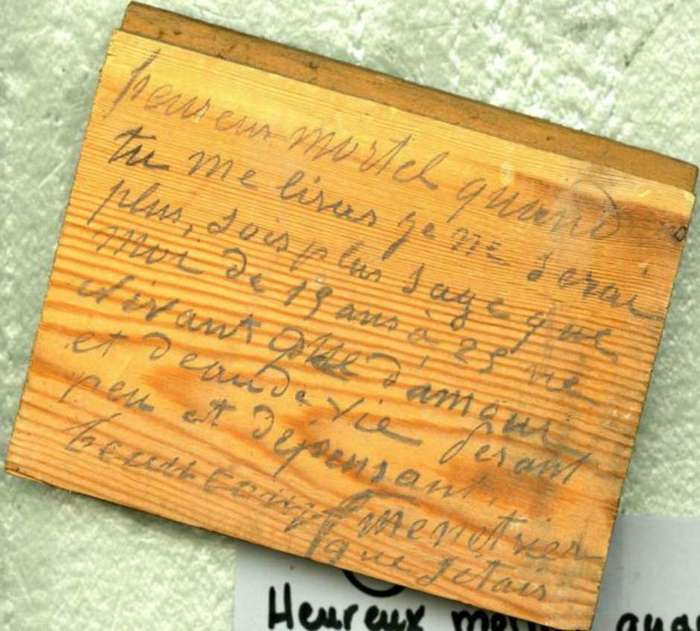 heureux mortel quand
tu me liras je ne serai
plus, sois plus sage que
moi de 19 ans à 25 ne
vivant que d'amour
et d'eau de vie ferant
peu et dépensant
beaucoup menetrier
que j'étais
Heureux